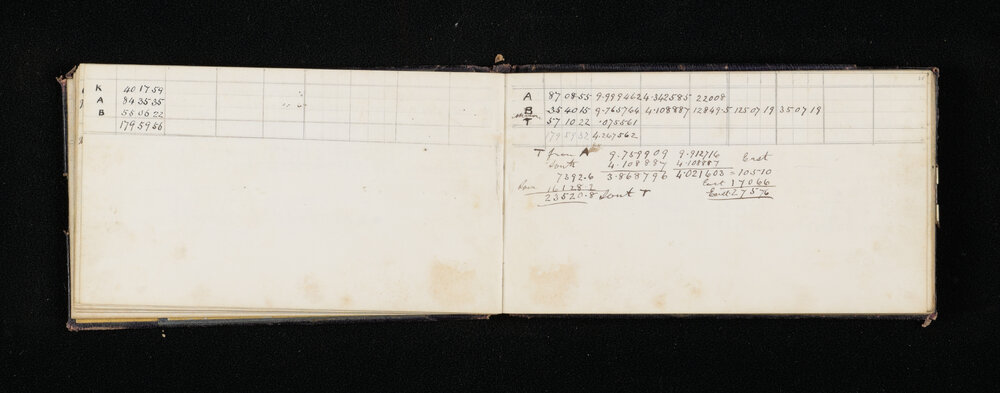 K 40 17 59
A 84 35 35 " "
B 55 06 22
179 59 56
A 87 08 55 9.999462 4.342585 22008
B 35 40 15 9.765764 4.108887 12849.5 125 07 19 35 07 19
T 57 10 22 .075561
179 59 32 4.267562
T from A 9.759909 9.912716 East
South 4.108887 4.108887
7392.6 3.868796 4.021603 = 10510
16128.2 East 17066
23520.8 South T East 27576